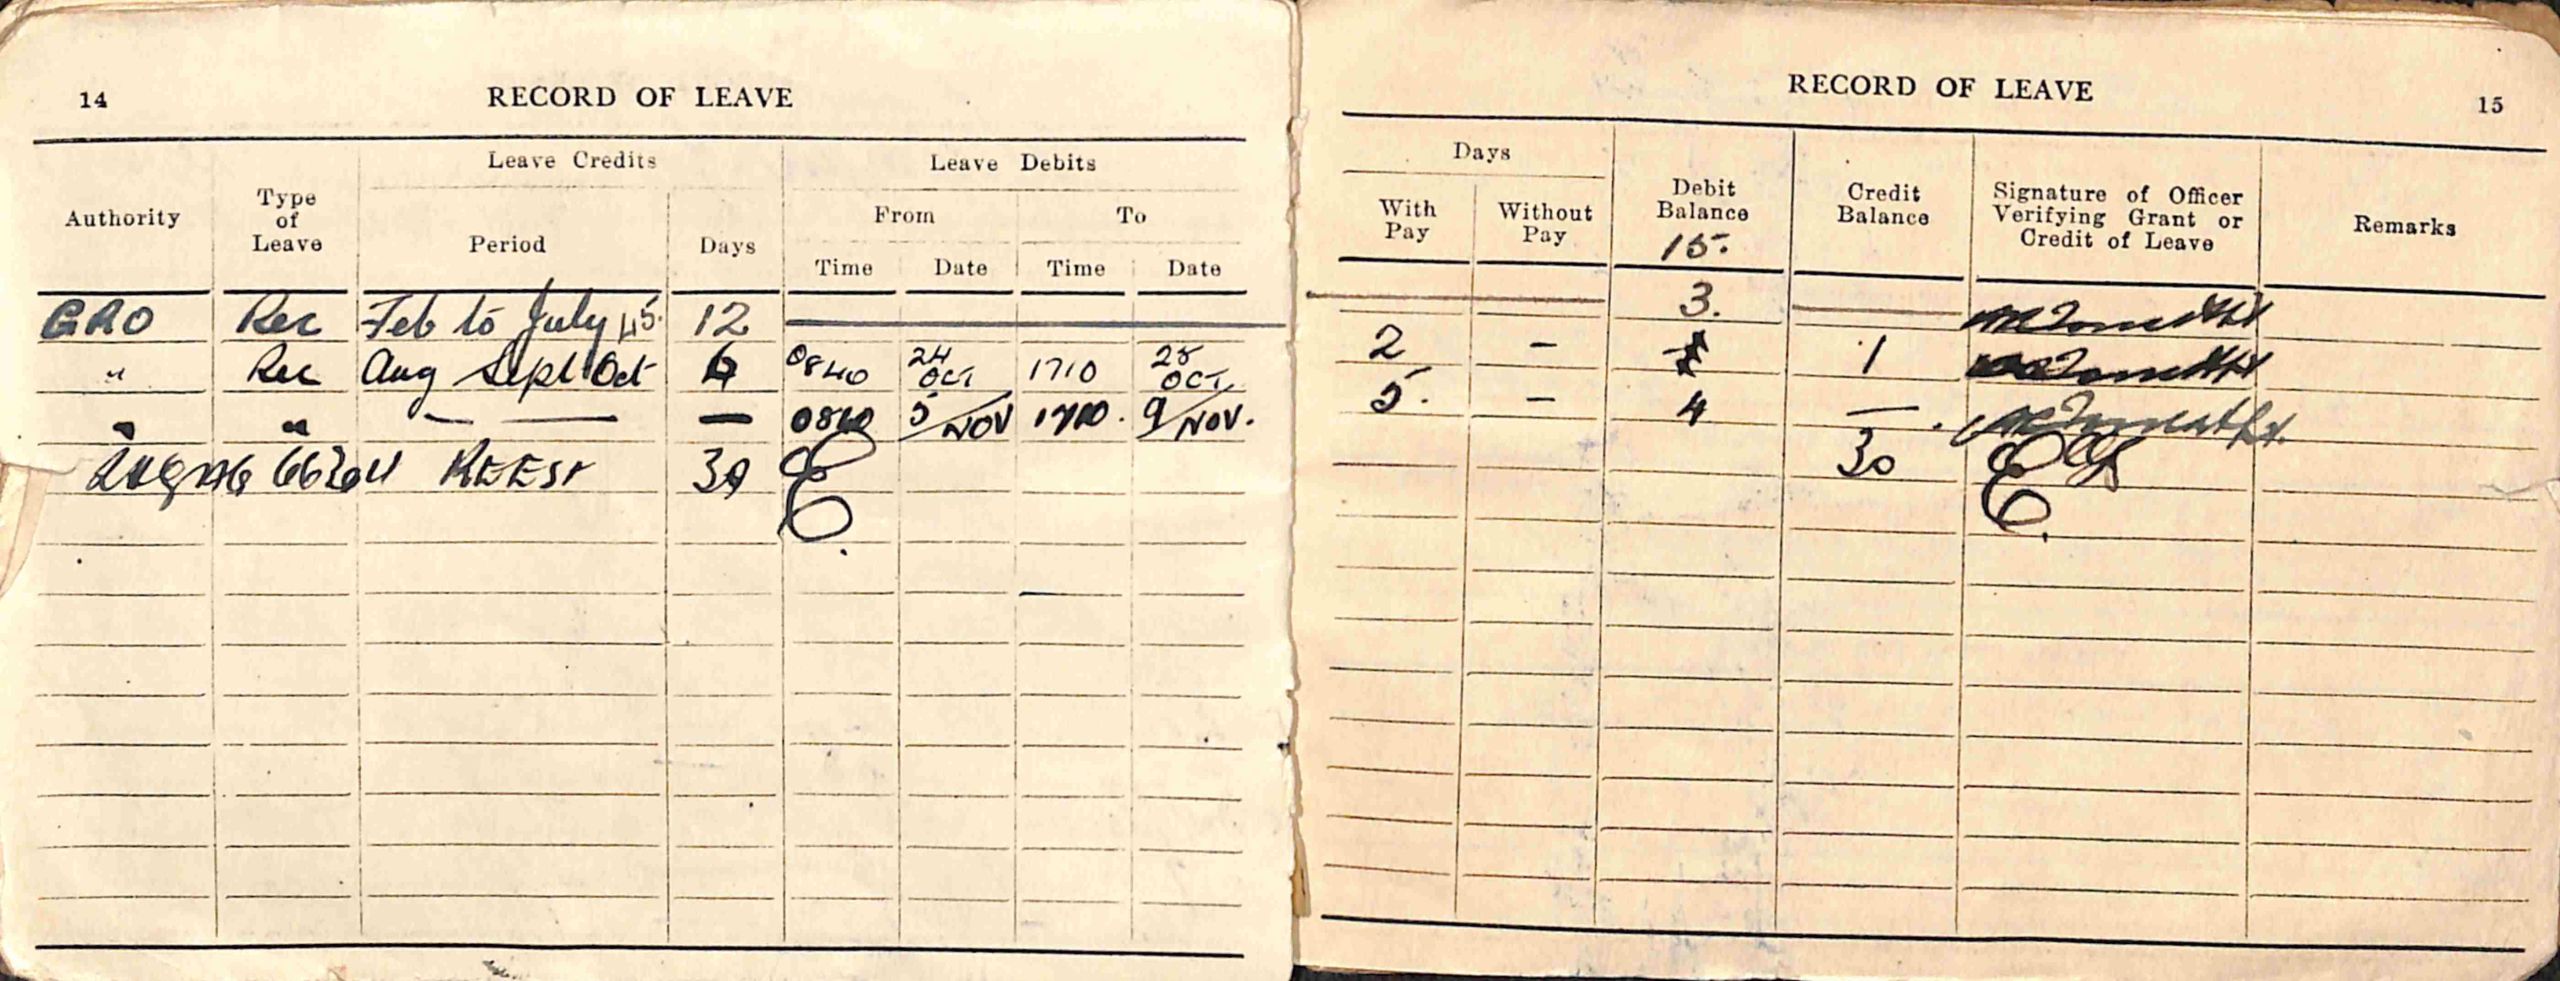 14 RECORD OF LEAVE
Authority Type of Leave Leave Credits Leave Debits
Period Days From To
Time Date Time Date
GRO Rec Feb to July 45. 12
" Rec Aug Sept Oct 6 0840 24 OCT 1710 25 OCT.
" " — — — 0840 5/NOV 1710. 9/NOV.
30
RECORD OF LEAVE 15
Days Debit Balance Credit Balance Signature of Officer Verifying Grant or Credit of Leave Remarks
With Pay Without Pay
15.
3.
2 - 1
5. - 4 —
30